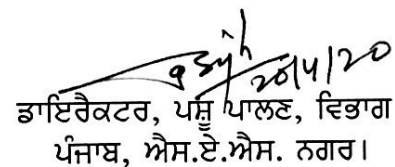 20/4/20
ਡਾਇਰੈਕਟਰ, ਪਸ਼ੂ ਪਾਲਣ, ਵਿਭਾਗ
ਪੰਜਾਬ, ਐਸ.ਏ.ਐਸ. ਨਗਰ।